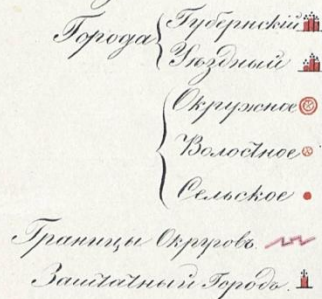 Города
Губернскій
Уѣздный
Окружное
Волостное
Сельское
Границы Округовъ
Заштатный Городъ.